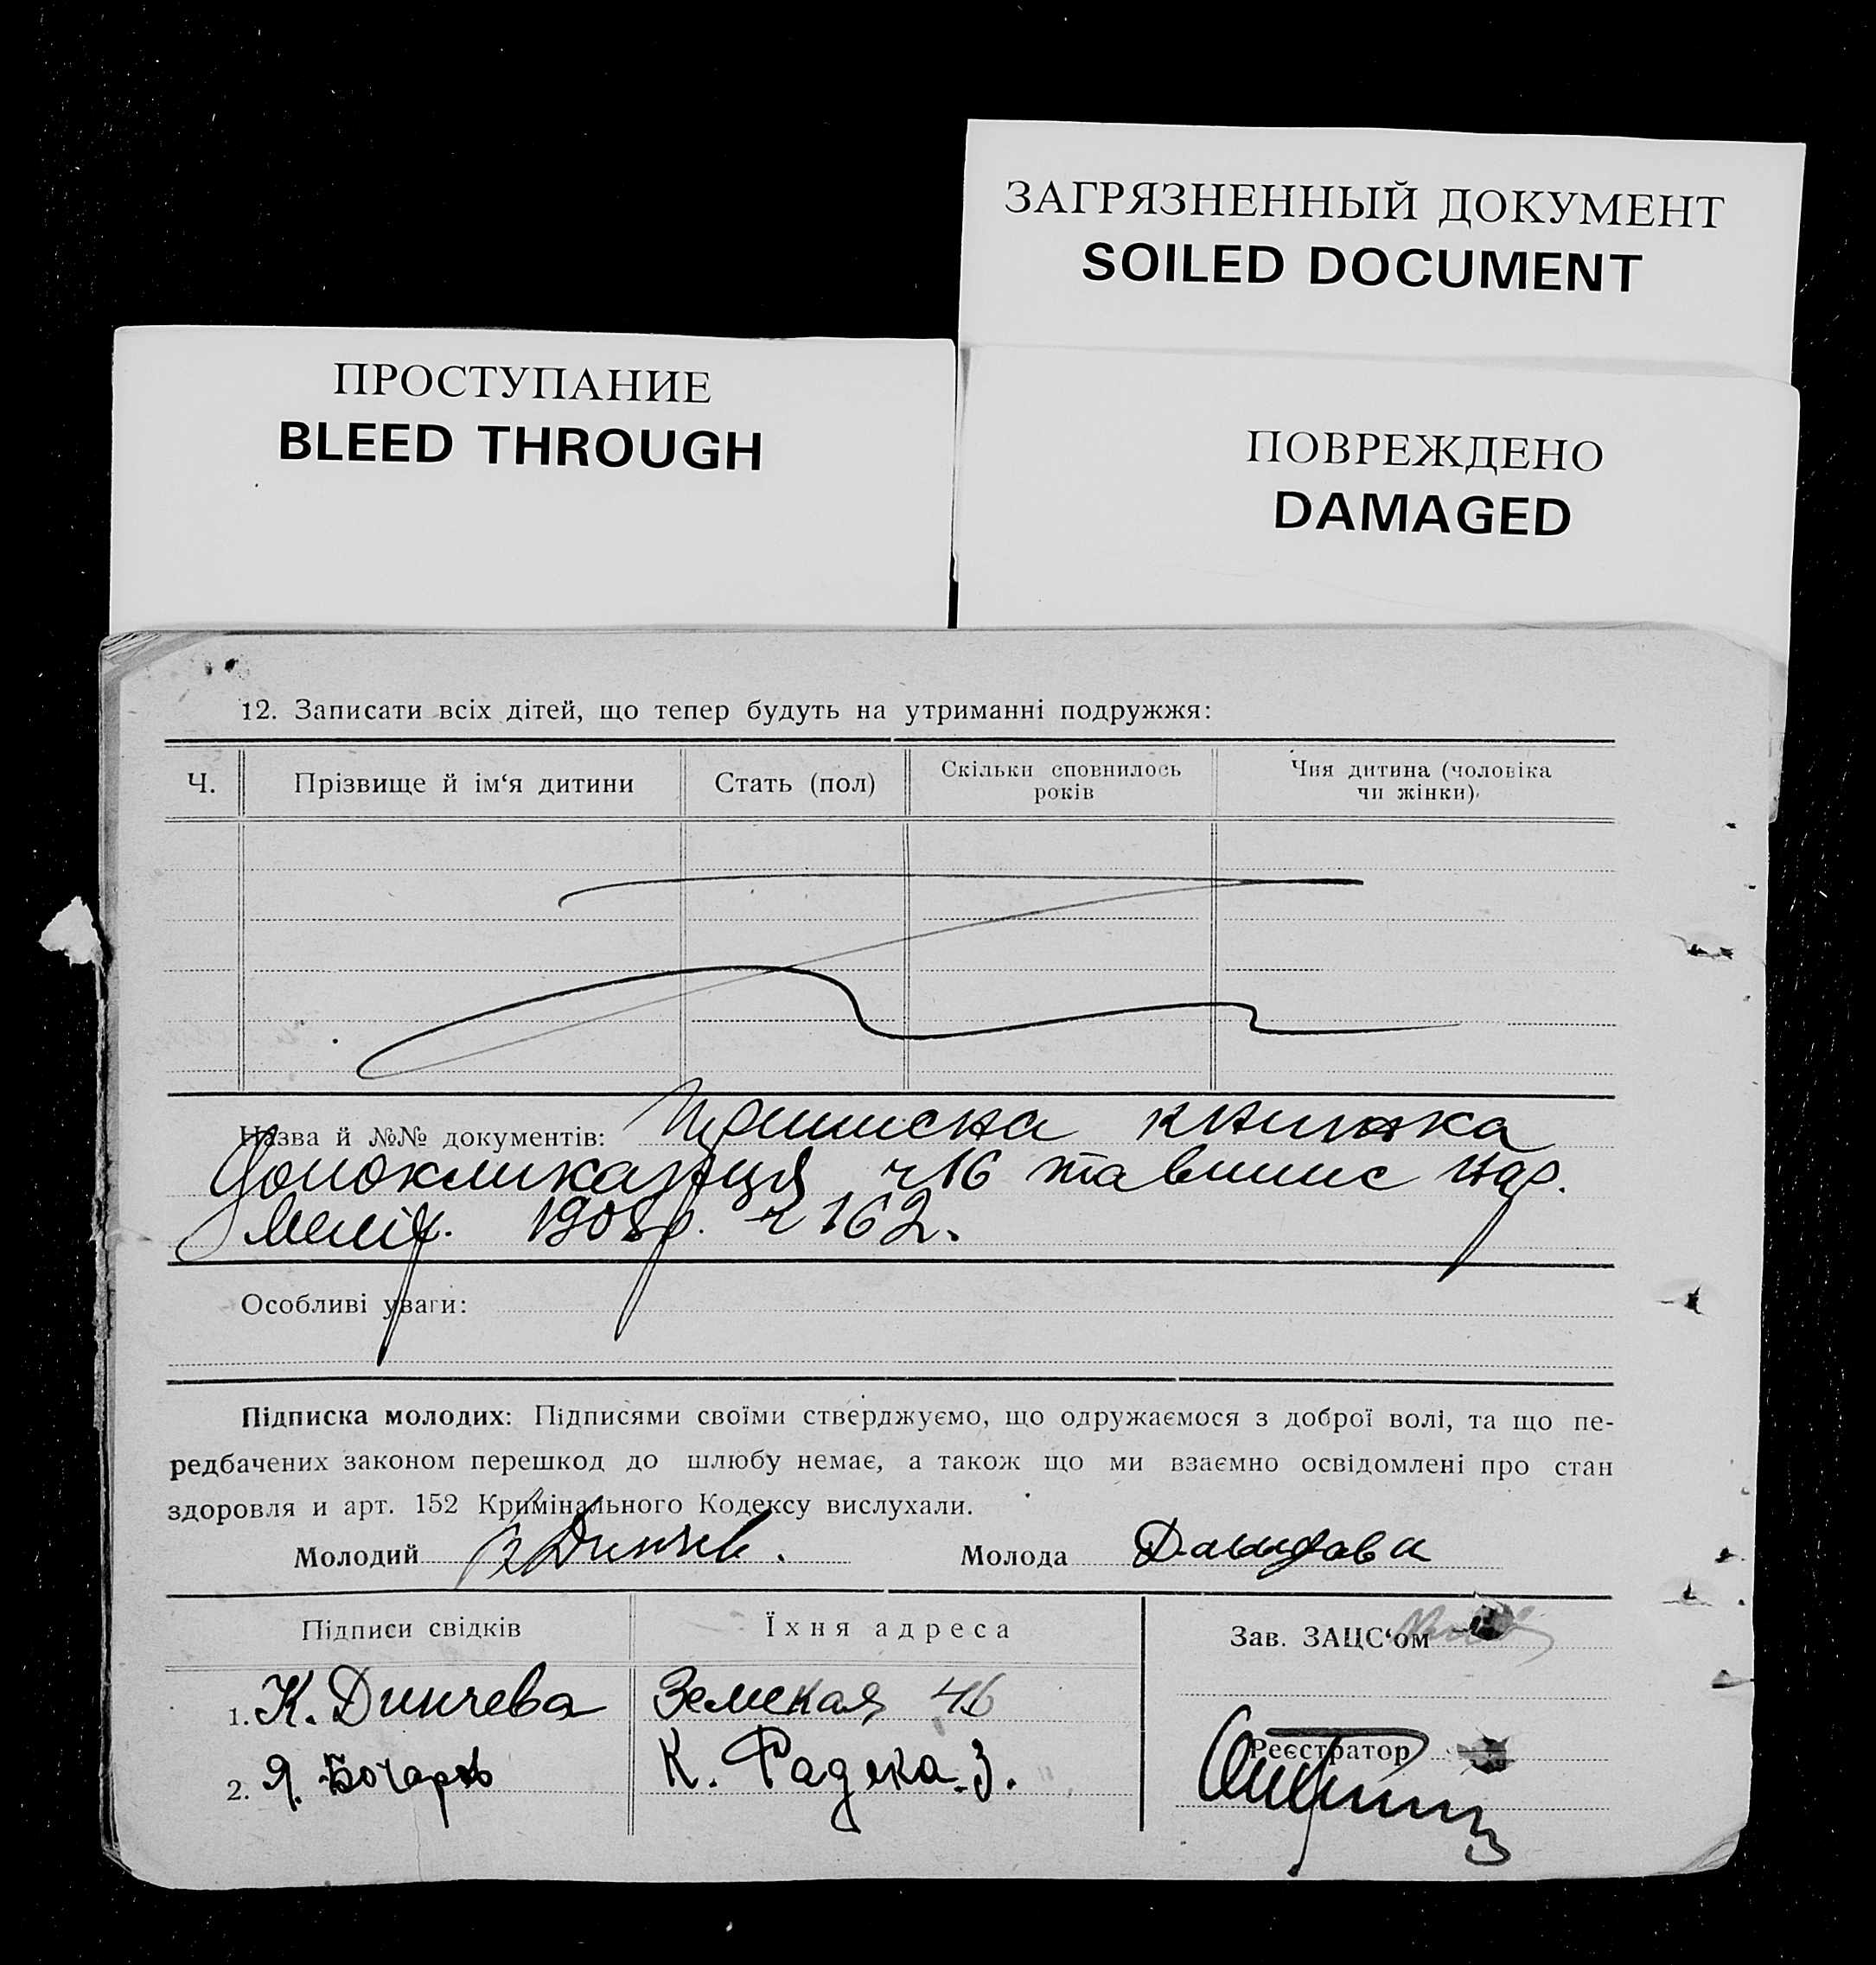 ЗАГРЯЗНЕННЫЙ ДОКУМЕНТ
SOILED DOCUMENT
ПРОСТУПАНИЕ
BLEED THROUGH
ПОВРЕЖДЕНО
DAMAGED
12. Записати всіх дітей, що тепер будуть на утриманні подружжя:
Ч.
Прізвище й ім‘я дитини
Стать (пол)
Скільки сповнилось
років
Чия дитина (чоловіка
чи жінки)
Назва й №№ документів: книжка
ч 16 та випис нар.
1908р. ч 162.
Особливі уваги:
Підписка молодих: Підписями своїми стверджуємо, що одружаємося з доброї волі, та що пе-
редбачених законом перешкод до шлюбу немає, а також що ми взаємно освідомлені про стан
здоровля и арт. 152 Кримінального Кодексу вислухали.
Молодий Динчев.
Молода Давидова
Підписи свідків
Їхня адреса
Зав. ЗАЦС‘ом
1. К. Динчева
Земская 46
Реєстратор
2. Я. Бочаров
К. Радека 3.